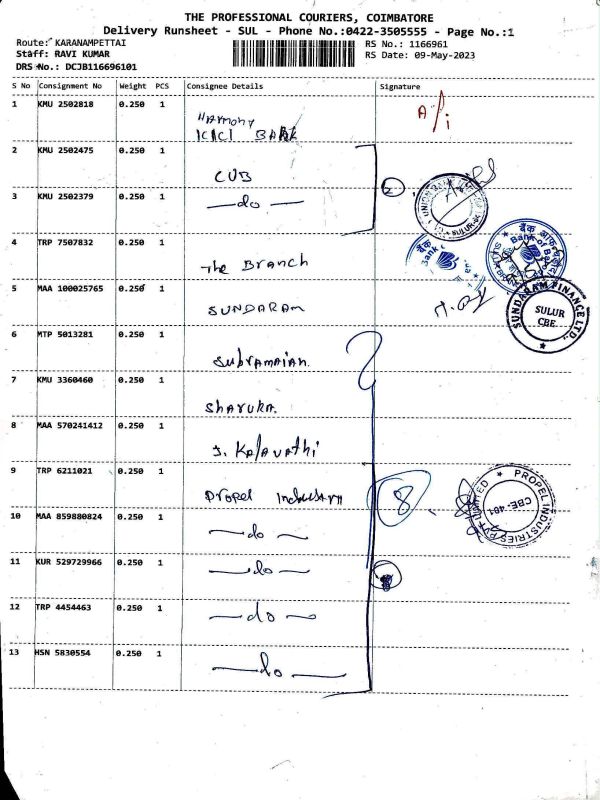 THE PROFESSIONAL COURIERS, COIMBATORE
Delivery Runsheet - SUL - Phone No.:0422-3505555 - Page No.:1
Route: KARANAMPETTAI
Staff: RAVI KUMAR
DRS No.: DCJB116696101
RS No.: 1166961
RS Date: 09-May-2023
S No Consignment No Weight PCS Consignee Details Signature
1 KMU 2502818 0.250 1 HARMONY
ICICI BANK
2 KMU 2502475 0.250 1 CUB
3 KMU 2502379 0.250 1 —do—
4 TRP 7507832 0.250 1 The Branch
5 MAA 100025765 0.250 1 SUNDARAM
6 MTP 5013281 0.250 1 Subramaian.
7 KMU 3360460 0.250 1 Sharuka.
8 MAA 570241412 0.250 1 J. Kalavathi
9 TRP 6211021 0.250 1 Propel
10 MAA 859880824 0.250 1 —do—
11 KUR 529729966 0.250 1 —do—
12 TRP 4454463 0.250 1 —do—
13 HSN 5830554 0.250 1 —do—
UNION BANK
SULUR
बैंक
Bank
बैंक ऑफ
Bank of
SUNDARAM FINANCE LTD.,
SULUR
CBE.
8
PROPEL INDUSTRIES PVT LIMITED
CBE-